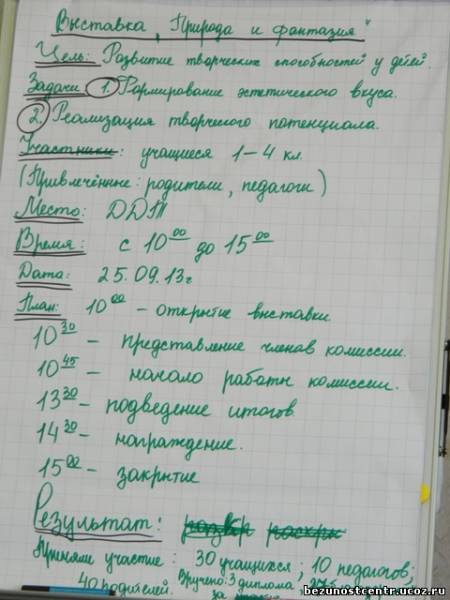 Выставка „Природа и фантазия"
Цель: Развитие творческих способностей у детей.
Задачи 1. Формирование эстетического вкуса.
2. Реализация творческого потенциала.
Участники: учащиеся 1-4 кл.
(Привлечённые: родители, педагоги)
Место: ДДТ
Время: с 10 00 до 15 00
Дата: 25.09.13г
План: 10 00 - открытие выставки.
10 30 - представление членов комиссии.
10 45 - начало работы комиссии.
13 30 - подведение итогов
14 30 - награждение.
15 00 - закрытие
Результат:
Приняли участие: 30 учащихся; 10 педагогов;
40 родителей. Вручено: 3 диплома
за
bezunostcentr.ucoz.ru